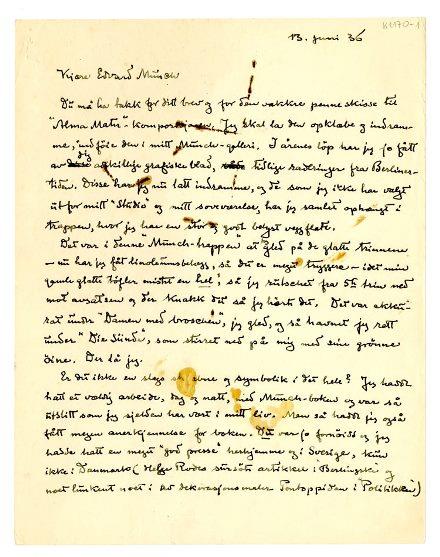 K 1170-1
13. juni 36
Kjære Edvard Munch
Du må ha takk for ditt brev og for den vakkre penneskisse til
"Alma Mater"-komposisjonen. Jeg skal la den opklæbe og indram-
me, indføie den i mitt Munch-galleri. I årenes løp har jeg jo fått
av dig adskillige grafiske blad, tidlige raderinger fra Berliner-
tiden. Disse har jeg nu latt indramme, og de som jeg ikke har valgt
ut for mitt "Studio" og mitt soveværelse, har jeg samlet ophængt i
trappen, hvor jeg har en stor og godt belyst vægflate.
Det var i denne Munch-trappen at gled på de glatte trinnene
– nu har jeg fått linoleumsbelegg, så det er meget tryggere – idet min
gamle glatte tøfler mistet en hel, så jeg rutschet fra 5te trin ned
mot avsatsen og der knakk det så jeg hørte det. Det var akku-
rat under "Damen med broschen", jeg gled, og så havnet jeg rett
under "Die Sünde", som stirret ned på mig med sine grønne
øine. Der lå jeg.
Er det ikke en slags skjebne og symbolik i det hele? Jeg hadde
hatt et veldig arbeide, dag og natt, med Munch-boken og var så
utslitt som jeg sjelden har vært i mitt liv. Men så hadde jeg også
fått megen anerkjennelse for boken. Du var jo fornøid og jeg
hadde hatt en meget "god presse" herhjemme og i Sverige, kun
ikke i Danmark (Helge Rodes sursøte artikkel i Berlingske og
noet lunkent noet i av dekorasjonsmaler Pontoppidan i "Politikken")